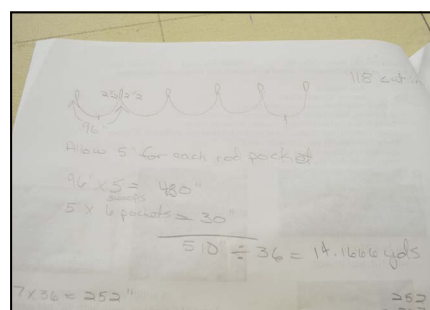 118 cut in
25 25
96"
Allow 5" for each rod pocket
96" x 5 = 480"
swags
5 x 6 pockets = 30"
510" ÷ 36 = 14.1666 yds
7 x 36 = 252"
252